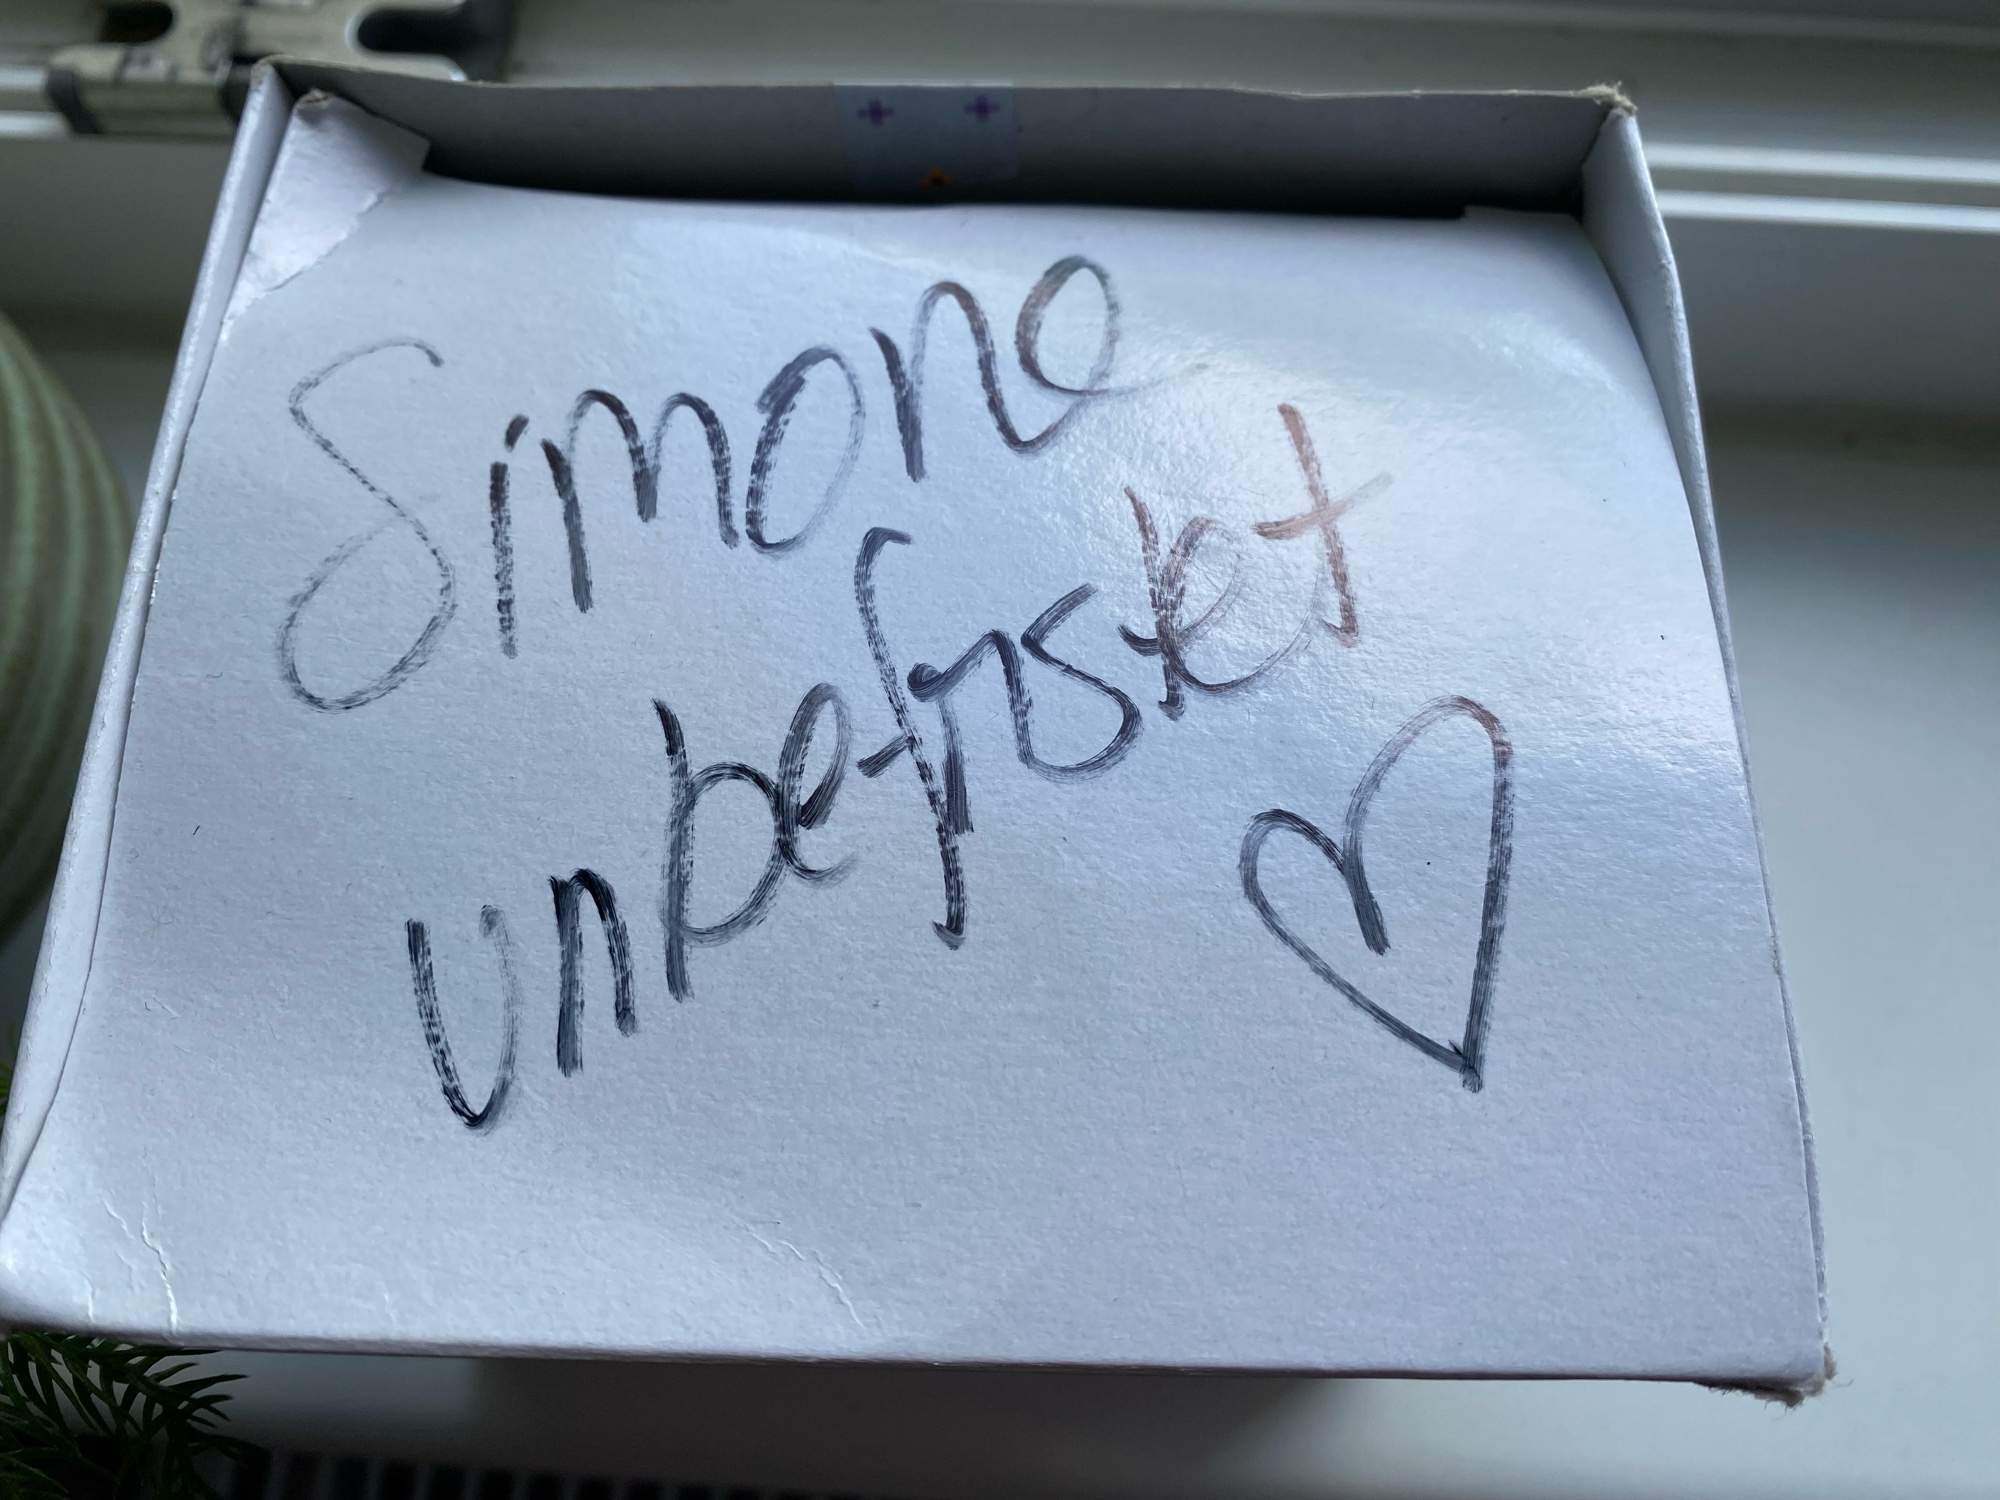 Simone
unbefristet